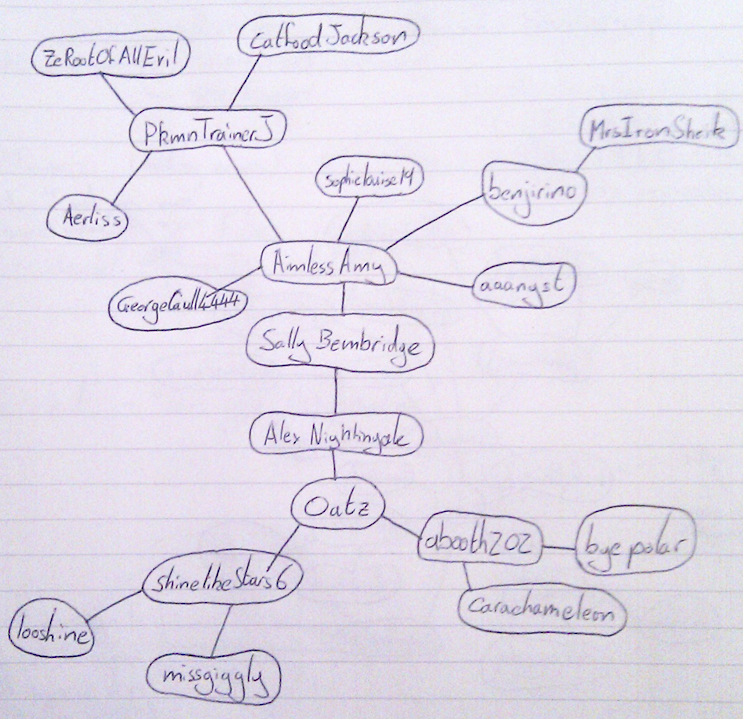 CatfoodJackson
ZeRootOfAllEvil
PkmnTrainerJ
MrsIronSheik
sophielouise14
benjirino
Aerliss
AimlessAmy
aaangst
Sally Bembridge
Alex Nightingale
Oatz
abooth202
bye polar
shinelikeStars6
Carachameleon
looshine
missgiggly